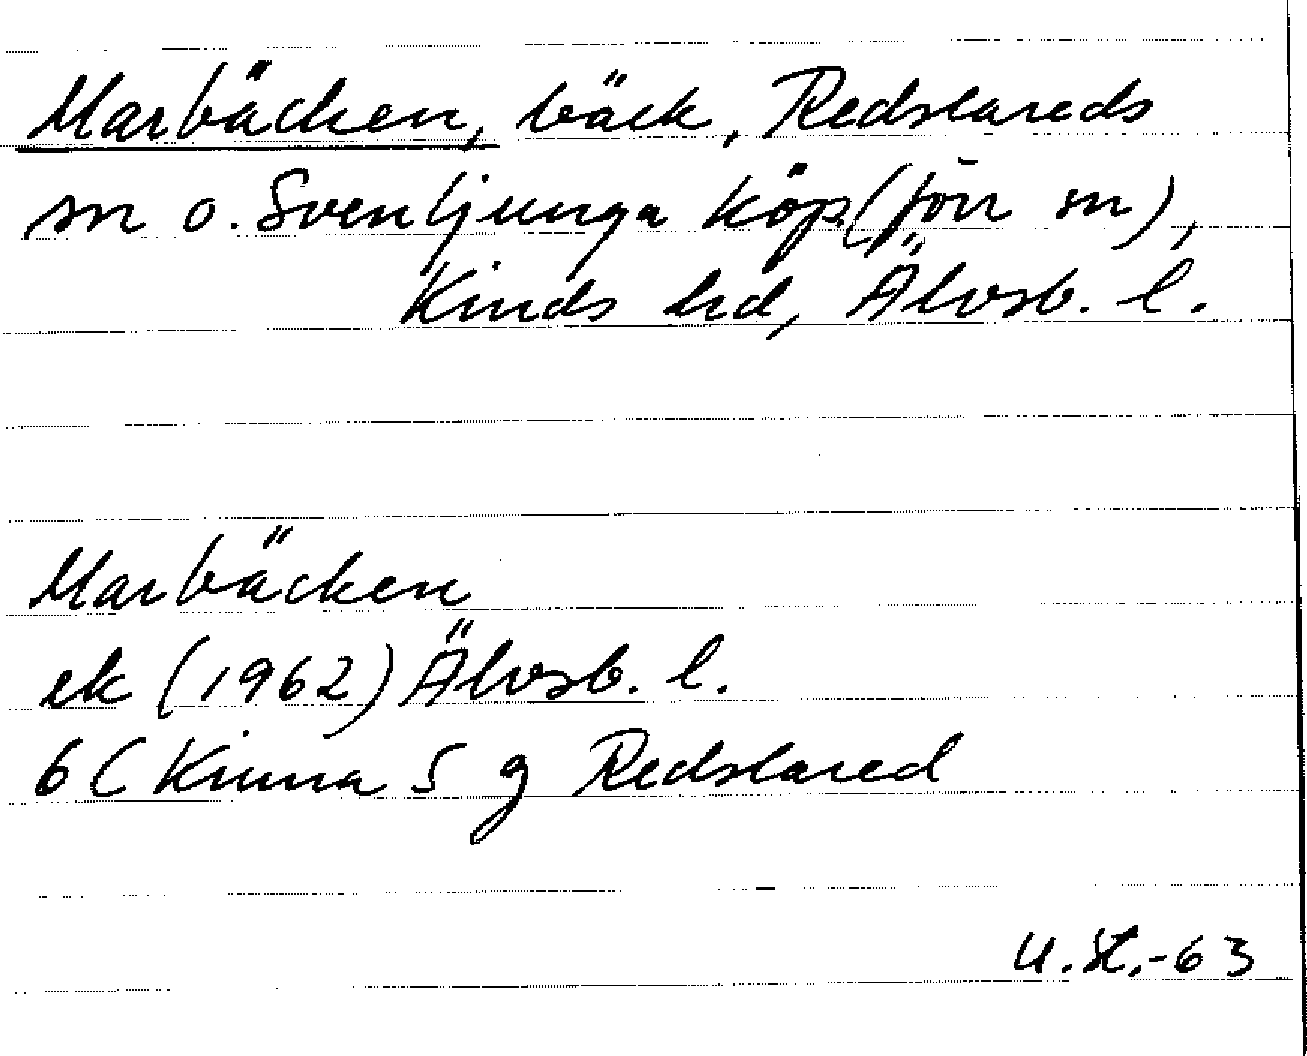 Marbäcken, bäck, Redslareds
sn o. Svenljunga köp. (förr sn),
Kinds hd, Älvsb. l.
Marbäcken
ek (1962) Älvsb. l.
6C Kinna 5 g Redslared
U.St.-63